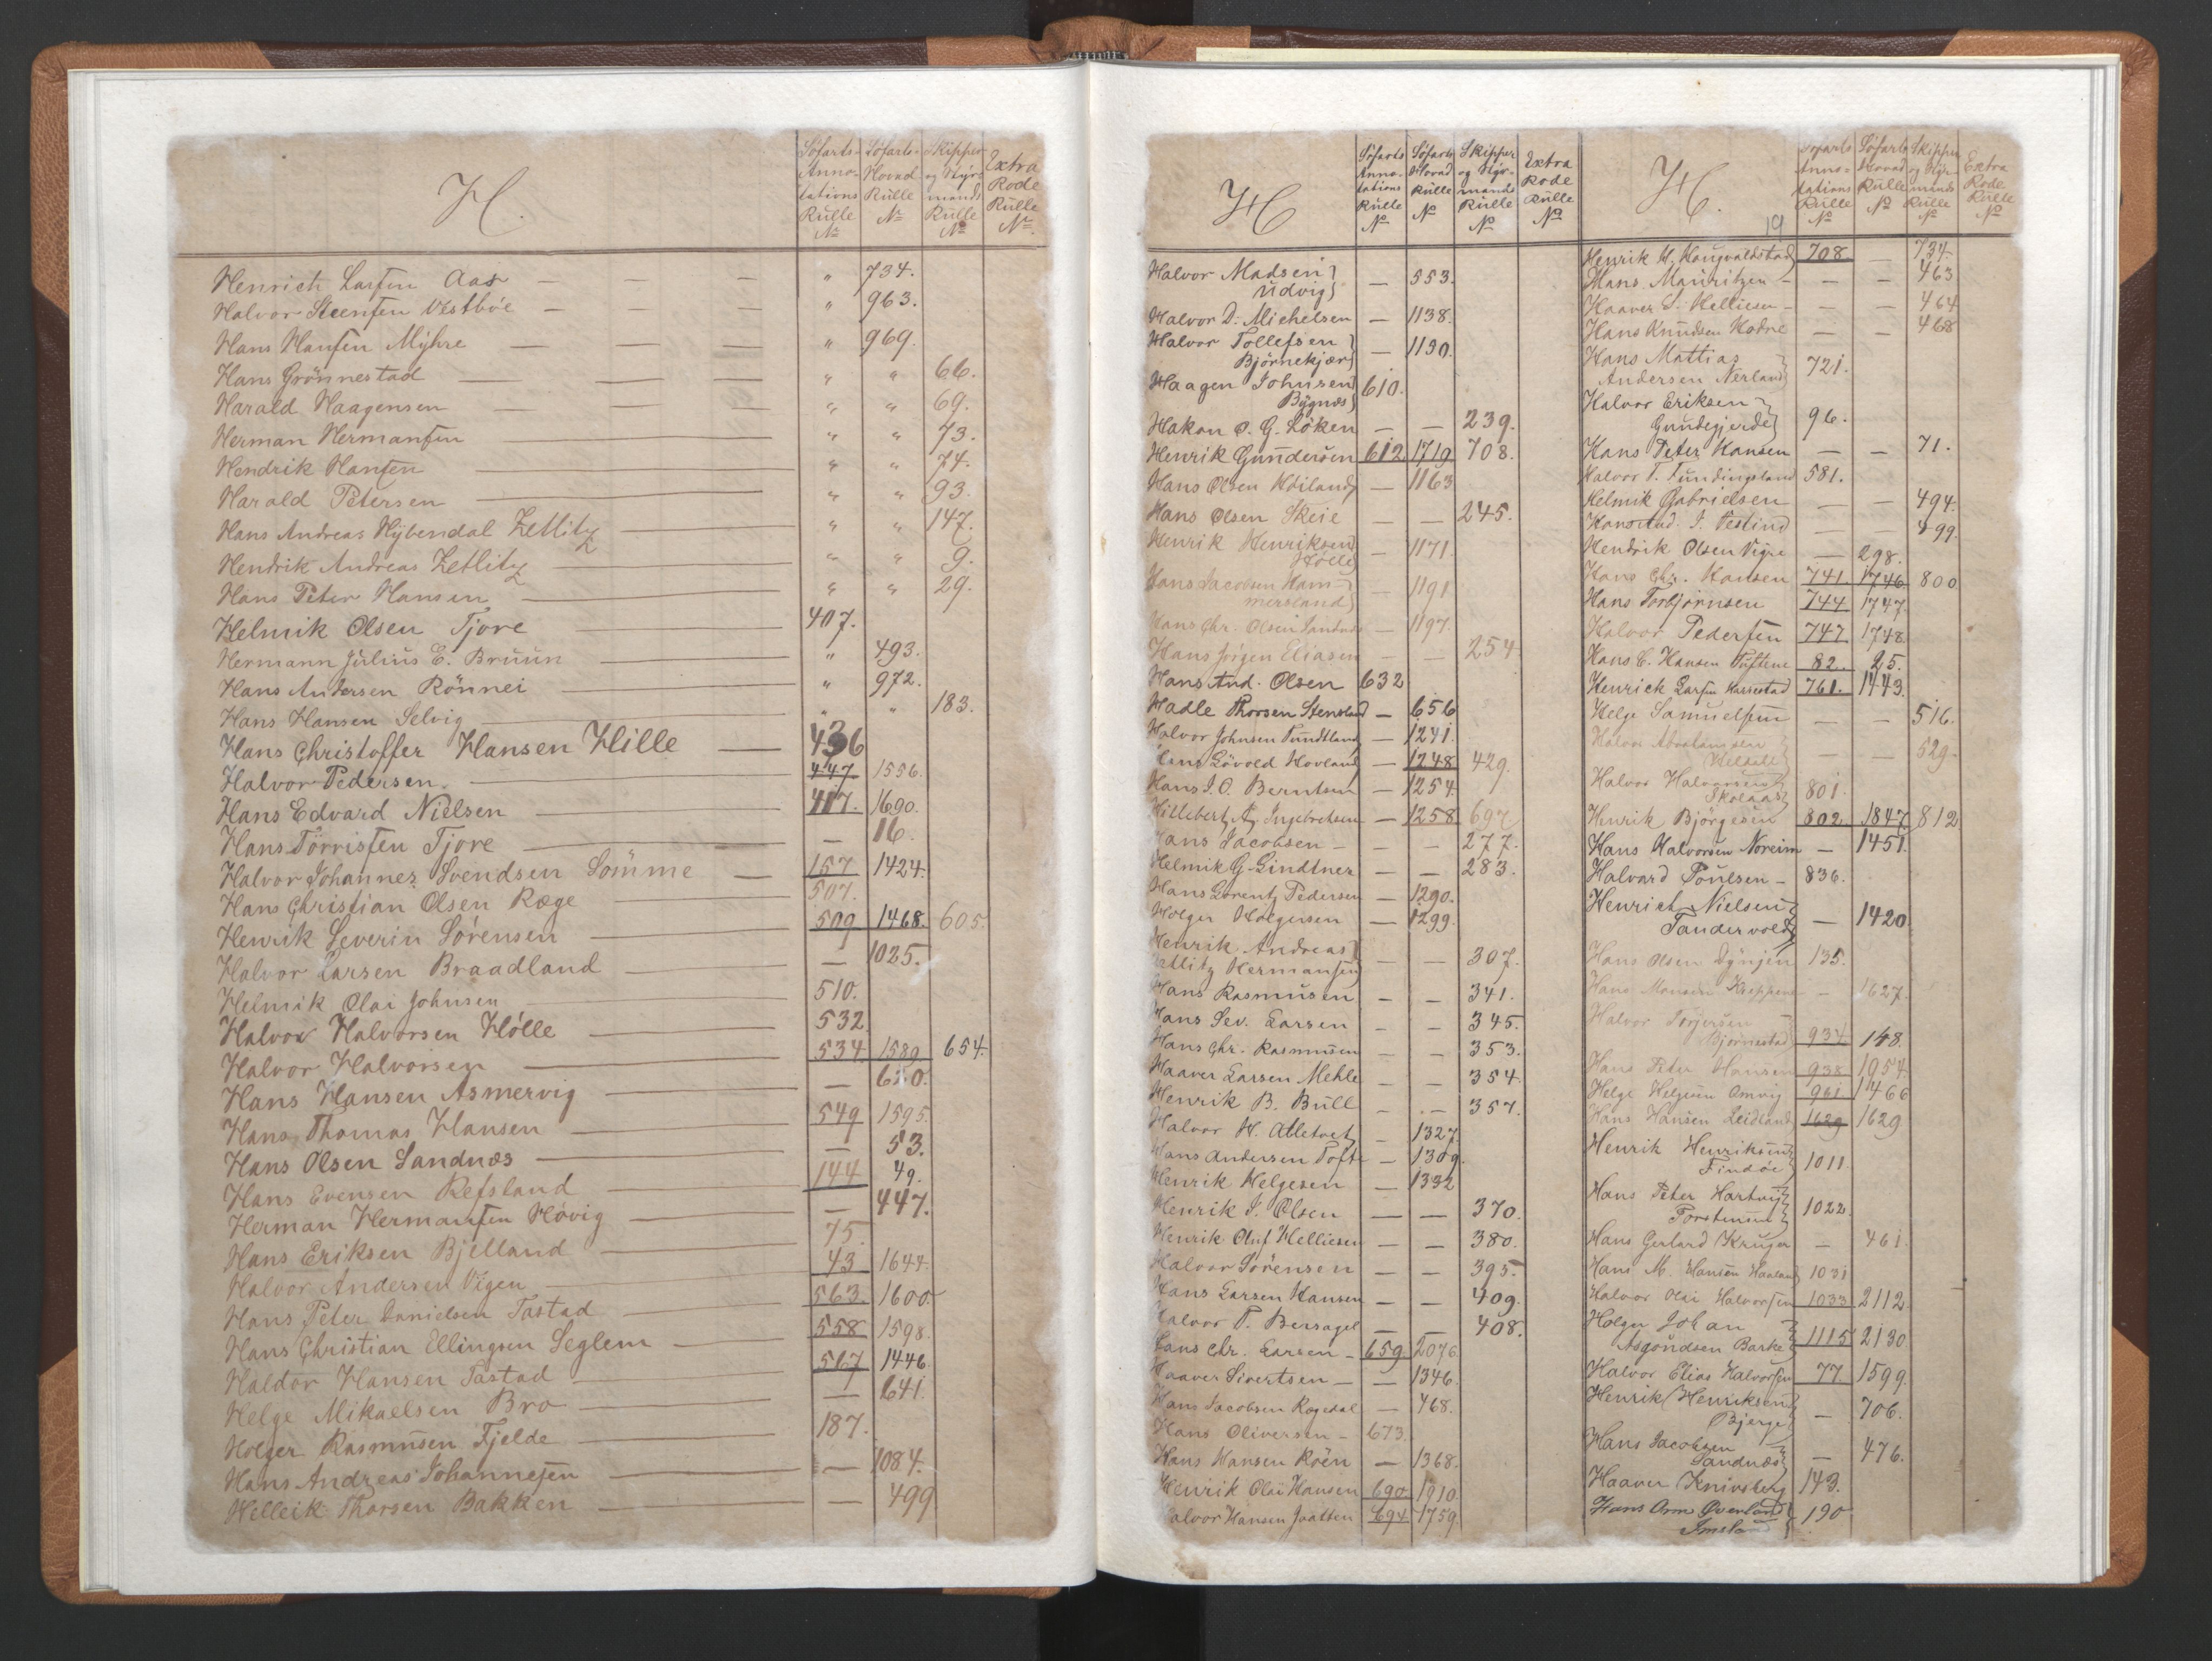 H.
Söfarts-Annotations Rulle No
Söfarts-Hoved Rulle No
Skipper og Styrmands Rulle No
Extra Rode Rulle No
Henrich Larsen Aas — — — " 734.
Halvor Steensen Vestbøe — — — " 963.
Hans Hansen Myhre — — — " 969.
Hans Grönnestad — — — " " 66.
Harald Haagensen — — " " 69.
Herman Hermansen — " " 73.
Hendrik Hansen — " " 74.
Harald Petersen — " " 93.
Hans Andreas Nybendal Zetlitz — " " 147.
Hendrik Andreas Zetlitz — " " 9.
Hans Peter Hansen — " " 29.
Helmik Olsen Tjore — 407.
Hermann Julius E. Bruun — " 493.
Hans Andersen Rönnei — " 972.
Hans Hansen Selvig — " " 183.
Hans Christoffer Hansen Hille — 436
Halvor Pedersen — 447 1556.
Hans Edvard Nielsen — 417. 1690.
Hans Törrissen Tjore — — 16.
Halvor Johannes Svendsen Sömme — 157 1424.
Hans Christian Olsen Ræge — 507.
Henrik Severin Sørensen — 509 1468. 605.
Halvor Larsen Braadland — — 1025.
Helmik Olai Johnsen — 510.
Halvor Halvorsen Hölle — 532.
Halvor Halvorsen — 534. 1589. 654.
Hans Hansen Asmervig — — 610.
Hans Thomas Hansen — 549 1595.
Hans Olsen Sandnæs — — 53.
Hans Evensen Refsland — 144 49.
Herman Hermansen Høvig — — 447.
Hans Eriksen Bjelland — 75.
Halvor Andersen Vigen — 43 1644.
Hans Peter Danielsen Tastad — 563. 1600.
Hans Christian Ellingsen Seglem — 558 1598.
Haldor Hansen Tastad — 567 1446.
Helge Mikaelsen Bro — — 641.
Holger Rasmussen Fjelde — 187.
Hans Andreas Johannesen — — 1084.
Helleik Thorsen Bakken — — 499
H
Söfarts Annotations Rulle No
Söfarts Hoved Rulle No
Skipper og Styrmands Rulle No
Extra Rode Rulle No
Halvor Madsen
Udvig — 553.
Halvor D. Michelsen — 1138.
Halvor Tollefsen
Björnekjær — 1130.
Haagen Johnsen
Bygnæs 610.
Hakon O. G. Löken — — 239.
Henrik Gundersen 612. 1719 708.
Hans Olsen Höiland — 1163
Hans Olsen Skeie — — 245.
Henrik Henriksen
Hölle — 1171.
Hans Jacobsen Ham-
mersland — 1191
Hans Chr. Olsen Sandnæs — 1197.
Hans Jörgen Eliasen — — 254
Hans And. Olsen 632
Hadle Thorsen Stensland — 656
Halvor Johnsen Tundtland — 1241.
Hans Lövold Hovland — 1248 429.
Hans J. O. Berntsen — 1254.
Hillebert A. Ingebretsen — 1258 697
Hans Jacobsen — — — 277.
Helmik G. Gindtner — — 283.
Hans Lorentz Pedersen — 1290.
Holger Holgersen — 1299.
Henrik Andreas
Zetlitz Hermansen — — 307.
Hans Rasmusen — — 341.
Hans Sev. Larsen — — 345.
Hans Chr. Rasmussen — — 353.
Haaver Larsen Mehle — — 354.
Henrik B. Bull — — 357.
Halvor H. Atletvet — 1327.
Hans Andersen Tofte — 1309.
Henrik Helgesen — 1332
Henrik J. Olsen — — 370.
Henrik Oluf Helliesen — — 380.
Halvor Sörensen — — 395.
Hans Larsen Hansen — — 409.
Halvor T. Bersagel — — 408.
Hans Chr. Larsen — 659. 2076.
Haaver Sivertsen — — 1346.
Hans Jacobsen Rogedal — 468.
Hans Oliversen — 673.
Hans Hansen Röen — 1368.
Henrik Olai Hansen 690 1910.
Halvor Hansen Jaatten 694. 1759.
H.
19
Söfarts Annotations Rulle No
Söfarts Hoved Rulle No
Skipper og Styrmands Rulle No
Extra Rode Rulle No
Henrik H. Haugvaldstad 708. — 734.
Hans Mauritzen — — — 463
Haaver E. Helliesen — — — 464
Hans Knudsen Hodne — — 468
Hans Mattias
Andersen Nerland 721.
Halvor Eriksen
Gundegjerde 96.
Hans Peter Hansen — — 71.
Halvor T. Tundingsland 581.
Helmik Gabrielsen — — 494.
Hans And. J. Testind — — 499.
Hendrik Olsen Vigre — 298.
Hans Chr. Hansen 741. 1746 800
Hans Torbjørnsen 744 1747.
Halvor Pedersen 747 1748
Hans C. Hansen Tuftene 82. 25.
Henrick Larsen Harrestad 761. 1443.
Helge Samuelsen — — 516.
Halvor Abrahamsen
— — 529.
Halvor Halvorsen
Skolaas 801.
Henrik Björgesen 802 1847 812
Hans Halvorsen Noreim — 1451.
Halvard Poulsen — 836.
Henrich Nielsen
Tandervold — 1420
Hans Olsen Dynjen 135.
Hans Monsen Kroppene — 1627.
Halvor Torjersen
Bjørnestad 934 148.
Hans Peter Hansen 938 1954
Helge Helgesen Omvig 961 1466
Hans Hansen Leidland 1629 1629
Henrik Henriksen
Findøe 1011.
Hans Peter Hartvig
Torstensen 1022.
Hans Gerhard Krüger — 461.
Hans M. Hansen Haaland 1031
Halvor Olai Halvorsen 1033 2112.
Holger Johan
Asgöndsen Barke 1115 2130.
Halvor Elias Halvorsen 77 1599.
Henrik Henriksen
Bjerge — 706.
Hans Jacobsen
Sandnæs — 476.
Haaver Knivsberg 143.
Hans Arne Qverland
Imsland 190